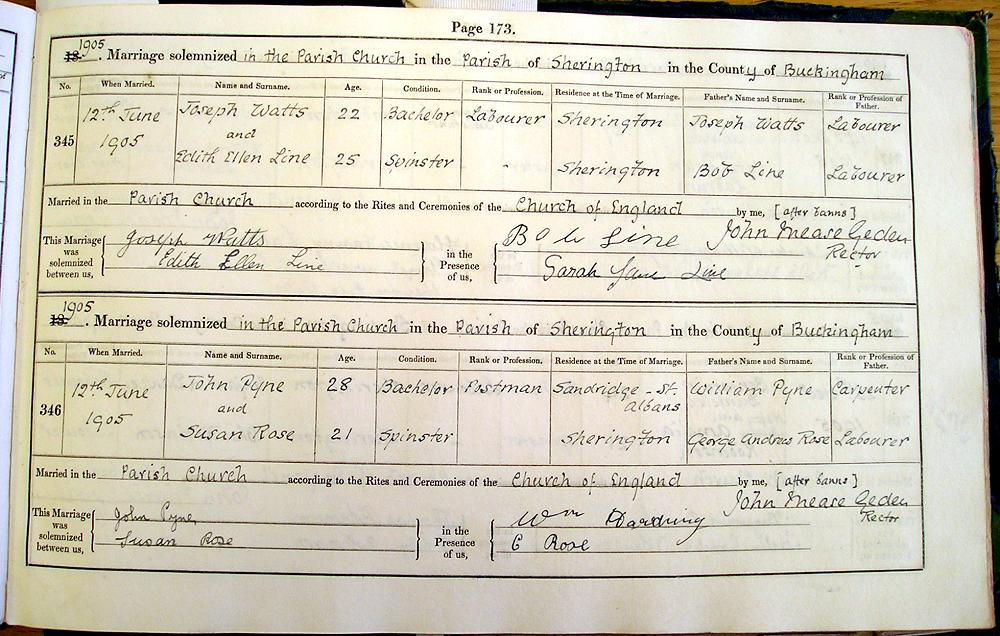 Page 173.
18 1905. Marriage solemnized in the Parish Church in the Parish of Sherington in the County of Buckingham
No. When Married. Name and Surname. Age. Condition. Rank or Profession. Residence at the Time of Marriage. Father's Name and Surname. Rank or Profession of Father.
345 12th June 1905 Joseph Watts 22 Bachelor Labourer Sherington Joseph Watts Labourer
and
Edith Ellen Line 25 Spinster - Sherington Bob Line Labourer
Married in the Parish Church according to the Rites and Ceremonies of the Church of England by me, [after banns]
John Mease Geden
Rector
This Marriage was solemnized between us, Joseph Watts in the Presence of us, Bob Line
Edith Ellen Line Sarah Jane Line
18 1905. Marriage solemnized in the Parish Church in the Parish of Sherington in the County of Buckingham
No. When Married. Name and Surname. Age. Condition. Rank or Profession. Residence at the Time of Marriage. Father's Name and Surname. Rank or Profession of Father.
346 12th June 1905 John Pyne 28 Bachelor Postman Sandridge - St. Albans William Pyne Carpenter
and
Susan Rose 21 Spinster Sherington George Andrew Rose Labourer
Married in the Parish Church according to the Rites and Ceremonies of the Church of England by me, [after banns]
John Mease Geden
Rector
This Marriage was solemnized between us, John Pyne in the Presence of us, Wm
Susan Rose Rose